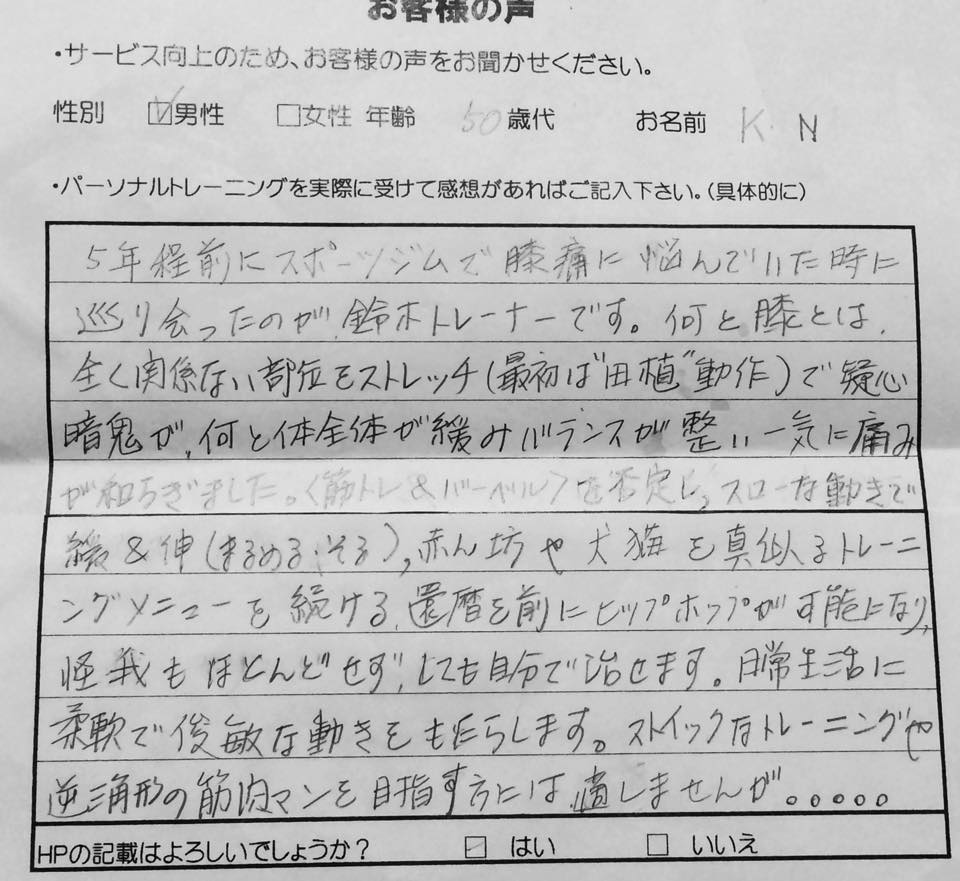 お客様の声
・サービス向上のため、お客様の声をお聞かせください。
性別 ☑男性 □女性 年齢 50歳代 お名前 K. N
・パーソナルトレーニングを実際に受けて感想があればご記入下さい。(具体的に)
5年程前にスポーツジムで膝痛に悩んでいた時に
巡り会ったのが、鈴木トレーナーです。何と膝とは、
全く関係ない部位をストレッチ(最初は"田植"動作)で疑心
暗鬼が、何と体全体が緩みバランスが整い一気に痛み
が和らぎました。〈筋トレ&バーベル〉を否定し、スローな動きで
緩&伸(まるめる・そる)、赤ん坊や犬猫を真似るトレーニ
ングメニューを続ける。還暦を前にヒップホップが可能になり、
怪我もほとんどせず、しても自分で治せます。日常生活に
柔軟で俊敏な動きをもたらします。ストイックなトレーニングや
逆三角形の筋肉マンを目指す方には、適しませんが。。。。。
HPの記載はよろしいでしょうか? ☑ はい □ いいえ